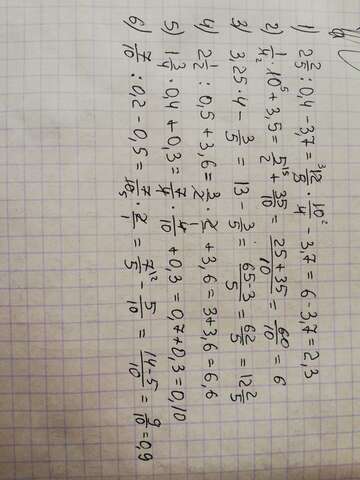 1) 2 2/5 : 0,4 - 3,7 = 12/5 · 10/4 - 3,7 = 6 - 3,7 = 2,3
2) 1/4 · 10 + 3,5 = 5/2 + 35/10 = 25+35/10 = 60/10 = 6
3) 3,25 · 4 - 3/5 = 13 - 3/5 = 65-3/5 = 62/5 = 12 2/5
4) 2 1/2 : 0,5 + 3,6 = 3/2 · 2/1 + 3,6 = 3 + 3,6 = 6,6
5) 1 3/4 · 0,4 + 0,3 = 7/4 · 4/10 + 0,3 = 0,7 + 0,3 = 0,10
6) 7/10 : 0,2 - 0,5 = 7/10 · 2/1 = 7/5 - 5/10 = 14-5/10 = 9/10 = 0,9